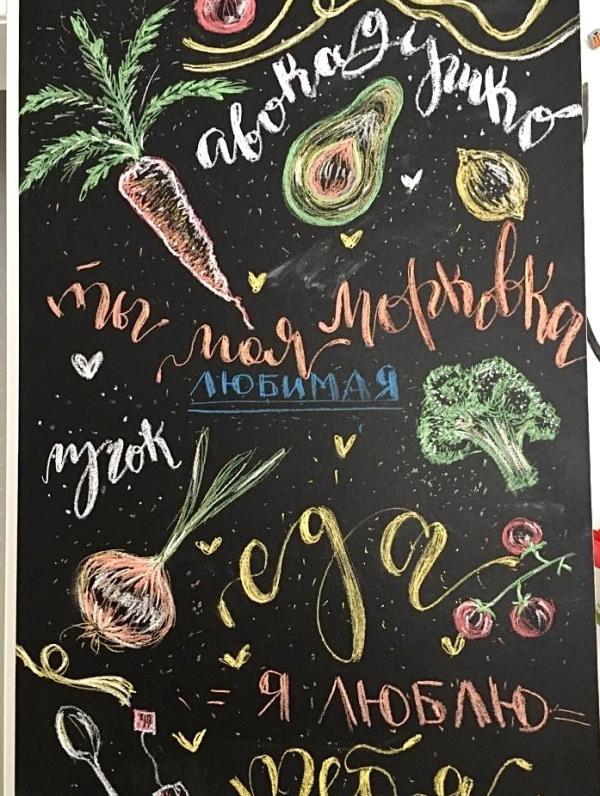 авокадушко
ты моя морковка
ЛЮБИМАЯ
лучок
еда
= Я ЛЮБЛЮ =
тебя